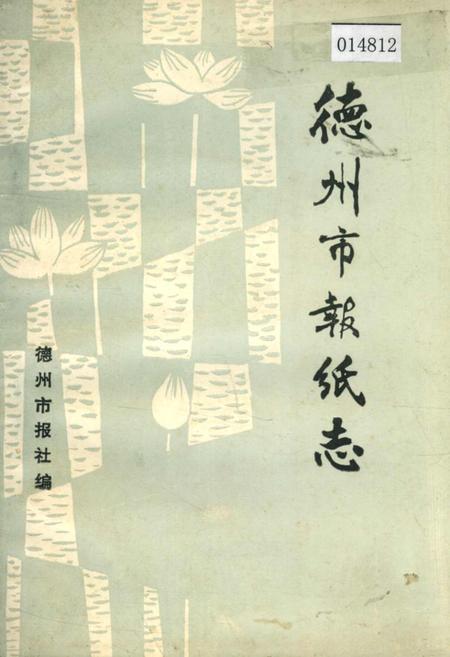 014812
德州市報纸志
德州市报社编